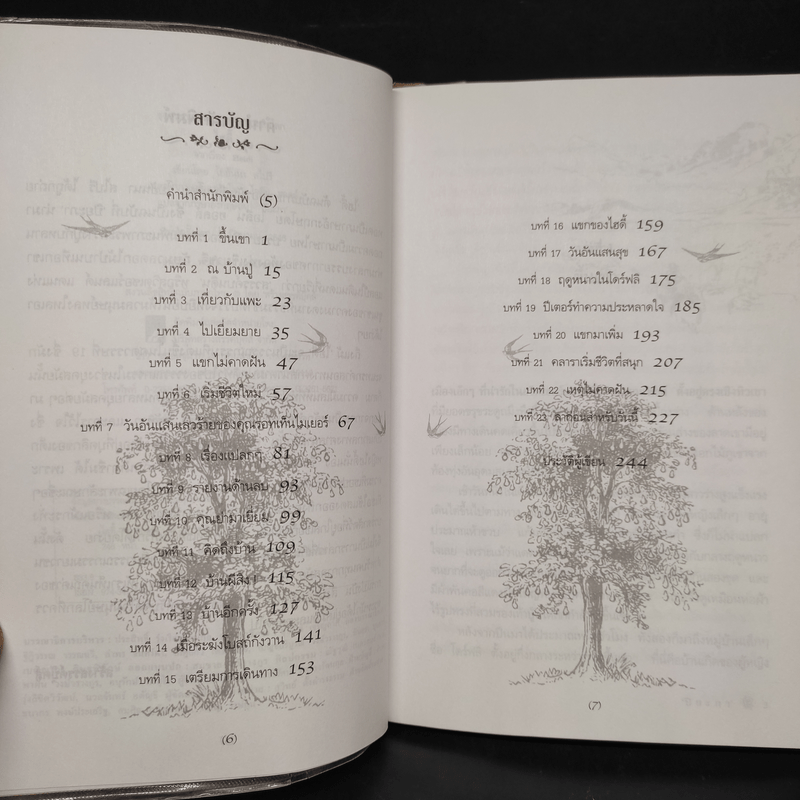 สารบัญ
คำนำสำนักพิมพ์ (5)
บทที่ 1 ขึ้นเขา 1
บทที่ 2 ณ บ้านปู่ 15
บทที่ 3 เที่ยวกับแพะ 23
บทที่ 4 ไปเยี่ยมยาย 35
บทที่ 5 แขกไม่คาดฝัน 47
บทที่ 6 เริ่มชีวิตใหม่ 57
บทที่ 7 วันอันแสนเลวร้ายของคุณรอทเท็นไมเยอร์ 67
บทที่ 8 เรื่องแปลกๆ 81
บทที่ 9 รายงานด้านลบ 93
บทที่ 10 คุณย่ามาเยี่ยม 99
บทที่ 11 คิดถึงบ้าน 109
บทที่ 12 บ้านผีสิง ! 115
บทที่ 13 บ้านอีกครั้ง 127
บทที่ 14 เมื่อระฆังโบสถ์กังวาน 141
บทที่ 15 เตรียมการเดินทาง 153
(6)
บทที่ 16 แขกของไฮดี้ 159
บทที่ 17 วันอันแสนสุข 167
บทที่ 18 ฤดูหนาวในโดร์ฟลิ 175
บทที่ 19 ปีเตอร์ทำความประหลาดใจ 185
บทที่ 20 แขกมาเพิ่ม 193
บทที่ 21 คลาราเริ่มชีวิตที่สนุก 207
บทที่ 22 เหตุไม่คาดฝัน 215
บทที่ 23 ลาก่อนสำหรับวันนี้ 227
ประวัติผู้เขียน 244
(7)